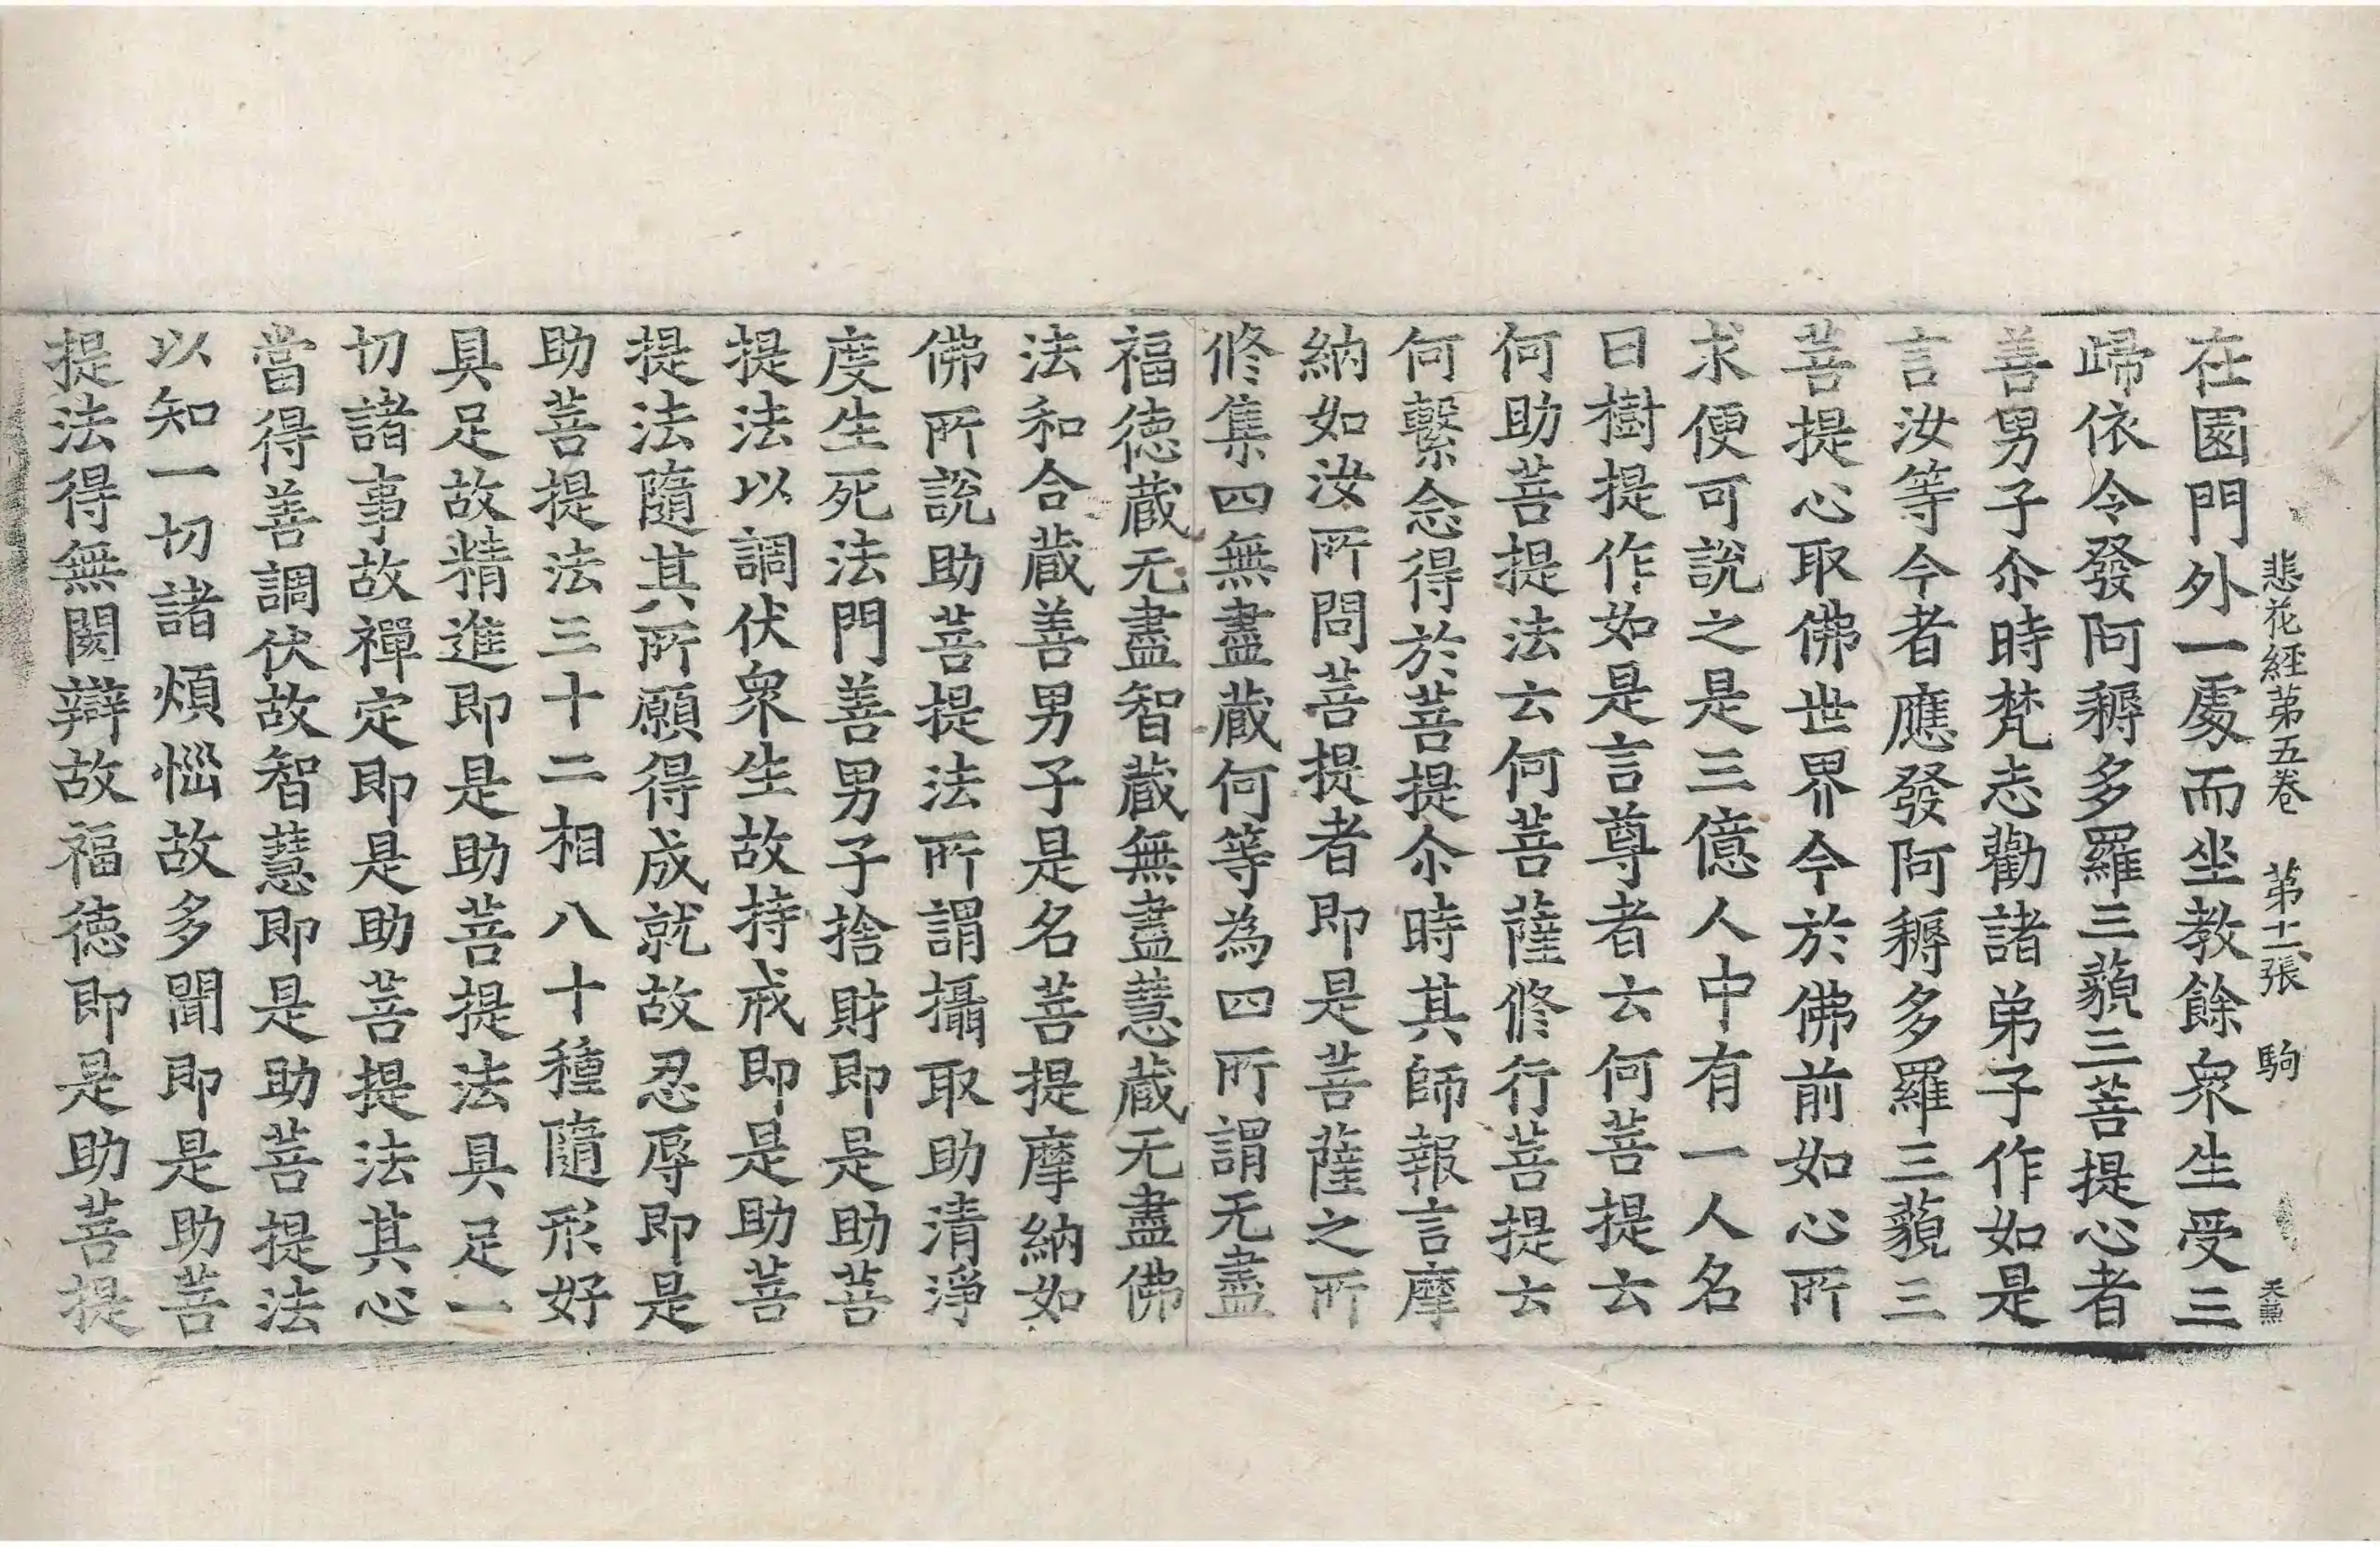 悲花經第五卷 第十二張 駒 天
在園門外一處而坐教餘衆生受三
歸依令發阿耨多羅三藐三菩提心者
善男子尒時梵志勸諸弟子作如是
言汝等今者應發阿耨多羅三藐三
菩提心取佛世界今於佛前如心所
求便可說之是三億人中有一人名
曰樹提作如是言尊者云何菩提云
何助菩提法云何菩薩修行菩提云
何繫念得於菩提尒時其師報言摩
納如汝所問菩提者即是菩薩之所
修集四無盡蔵何等為四所謂无盡
福徳蔵无盡智蔵無盡慧蔵无盡佛
法和合蔵善男子是名菩提摩納如
佛所說助菩提法所謂攝取助清淨
度生死法門善男子捨財即是助菩
提法以調伏衆生故持戒即是助菩
提法隨其所願得成就故忍辱即是
助菩提法三十二相八十種隨形好
具足故精進即是助菩提法具足一
切諸事故禪定即是助菩提法其心
當得善調伏故智慧即是助菩提法
以知一切諸煩惱故多聞即是助菩
提法得無閡辯故福徳即是助菩提